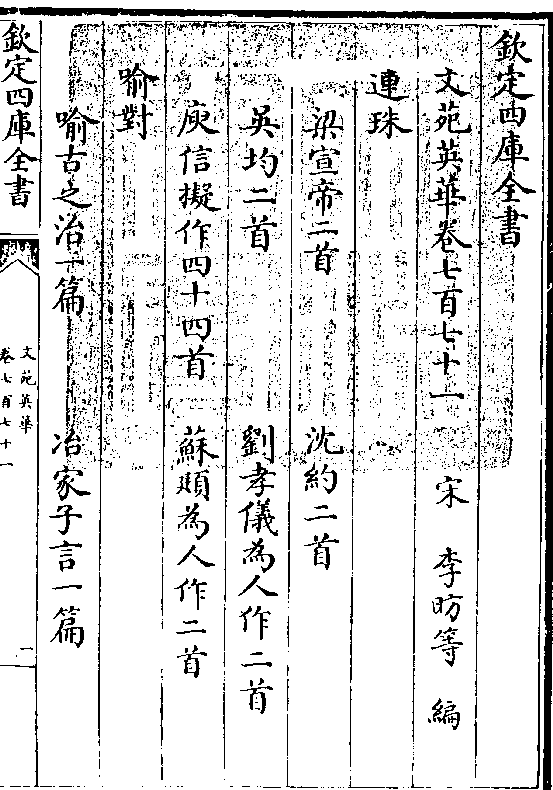 欽定四庫全書
文苑英華卷七百七十一 宋 李昉等 編
連珠
梁宣帝二首 沈約二首
吳均二首 劉孝儀為人作二首
庾信擬作四十四首 蘇頲為人作二首
喻對
喻古之治一篇 冶家子言一篇
欽定四庫全書
文苑英華
卷七百七十一
一